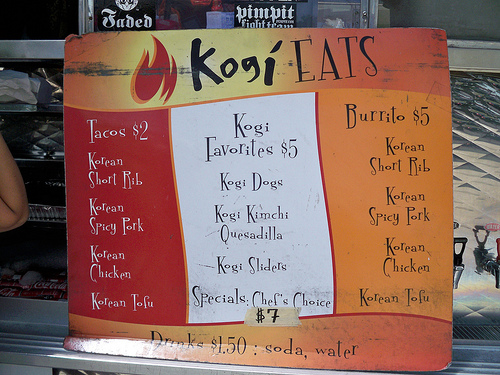 Faded
pimpit
Kogi EATS
Tacos $2
Korean
Short Rib
Korean
Spicy Pork
Korean
Chicken
Korean Tofu
Kogi
Favorites $5
Kogi Dogs
Kogi Kimchi
Quesadilla
Kogi Sliders
Specials: Chef's Choice
$7
Burrito $5
Korean
Short Rib
Korean
Spicy Pork
Korean
Chicken
Korean Tofu
Drinks $1.50 : soda, water